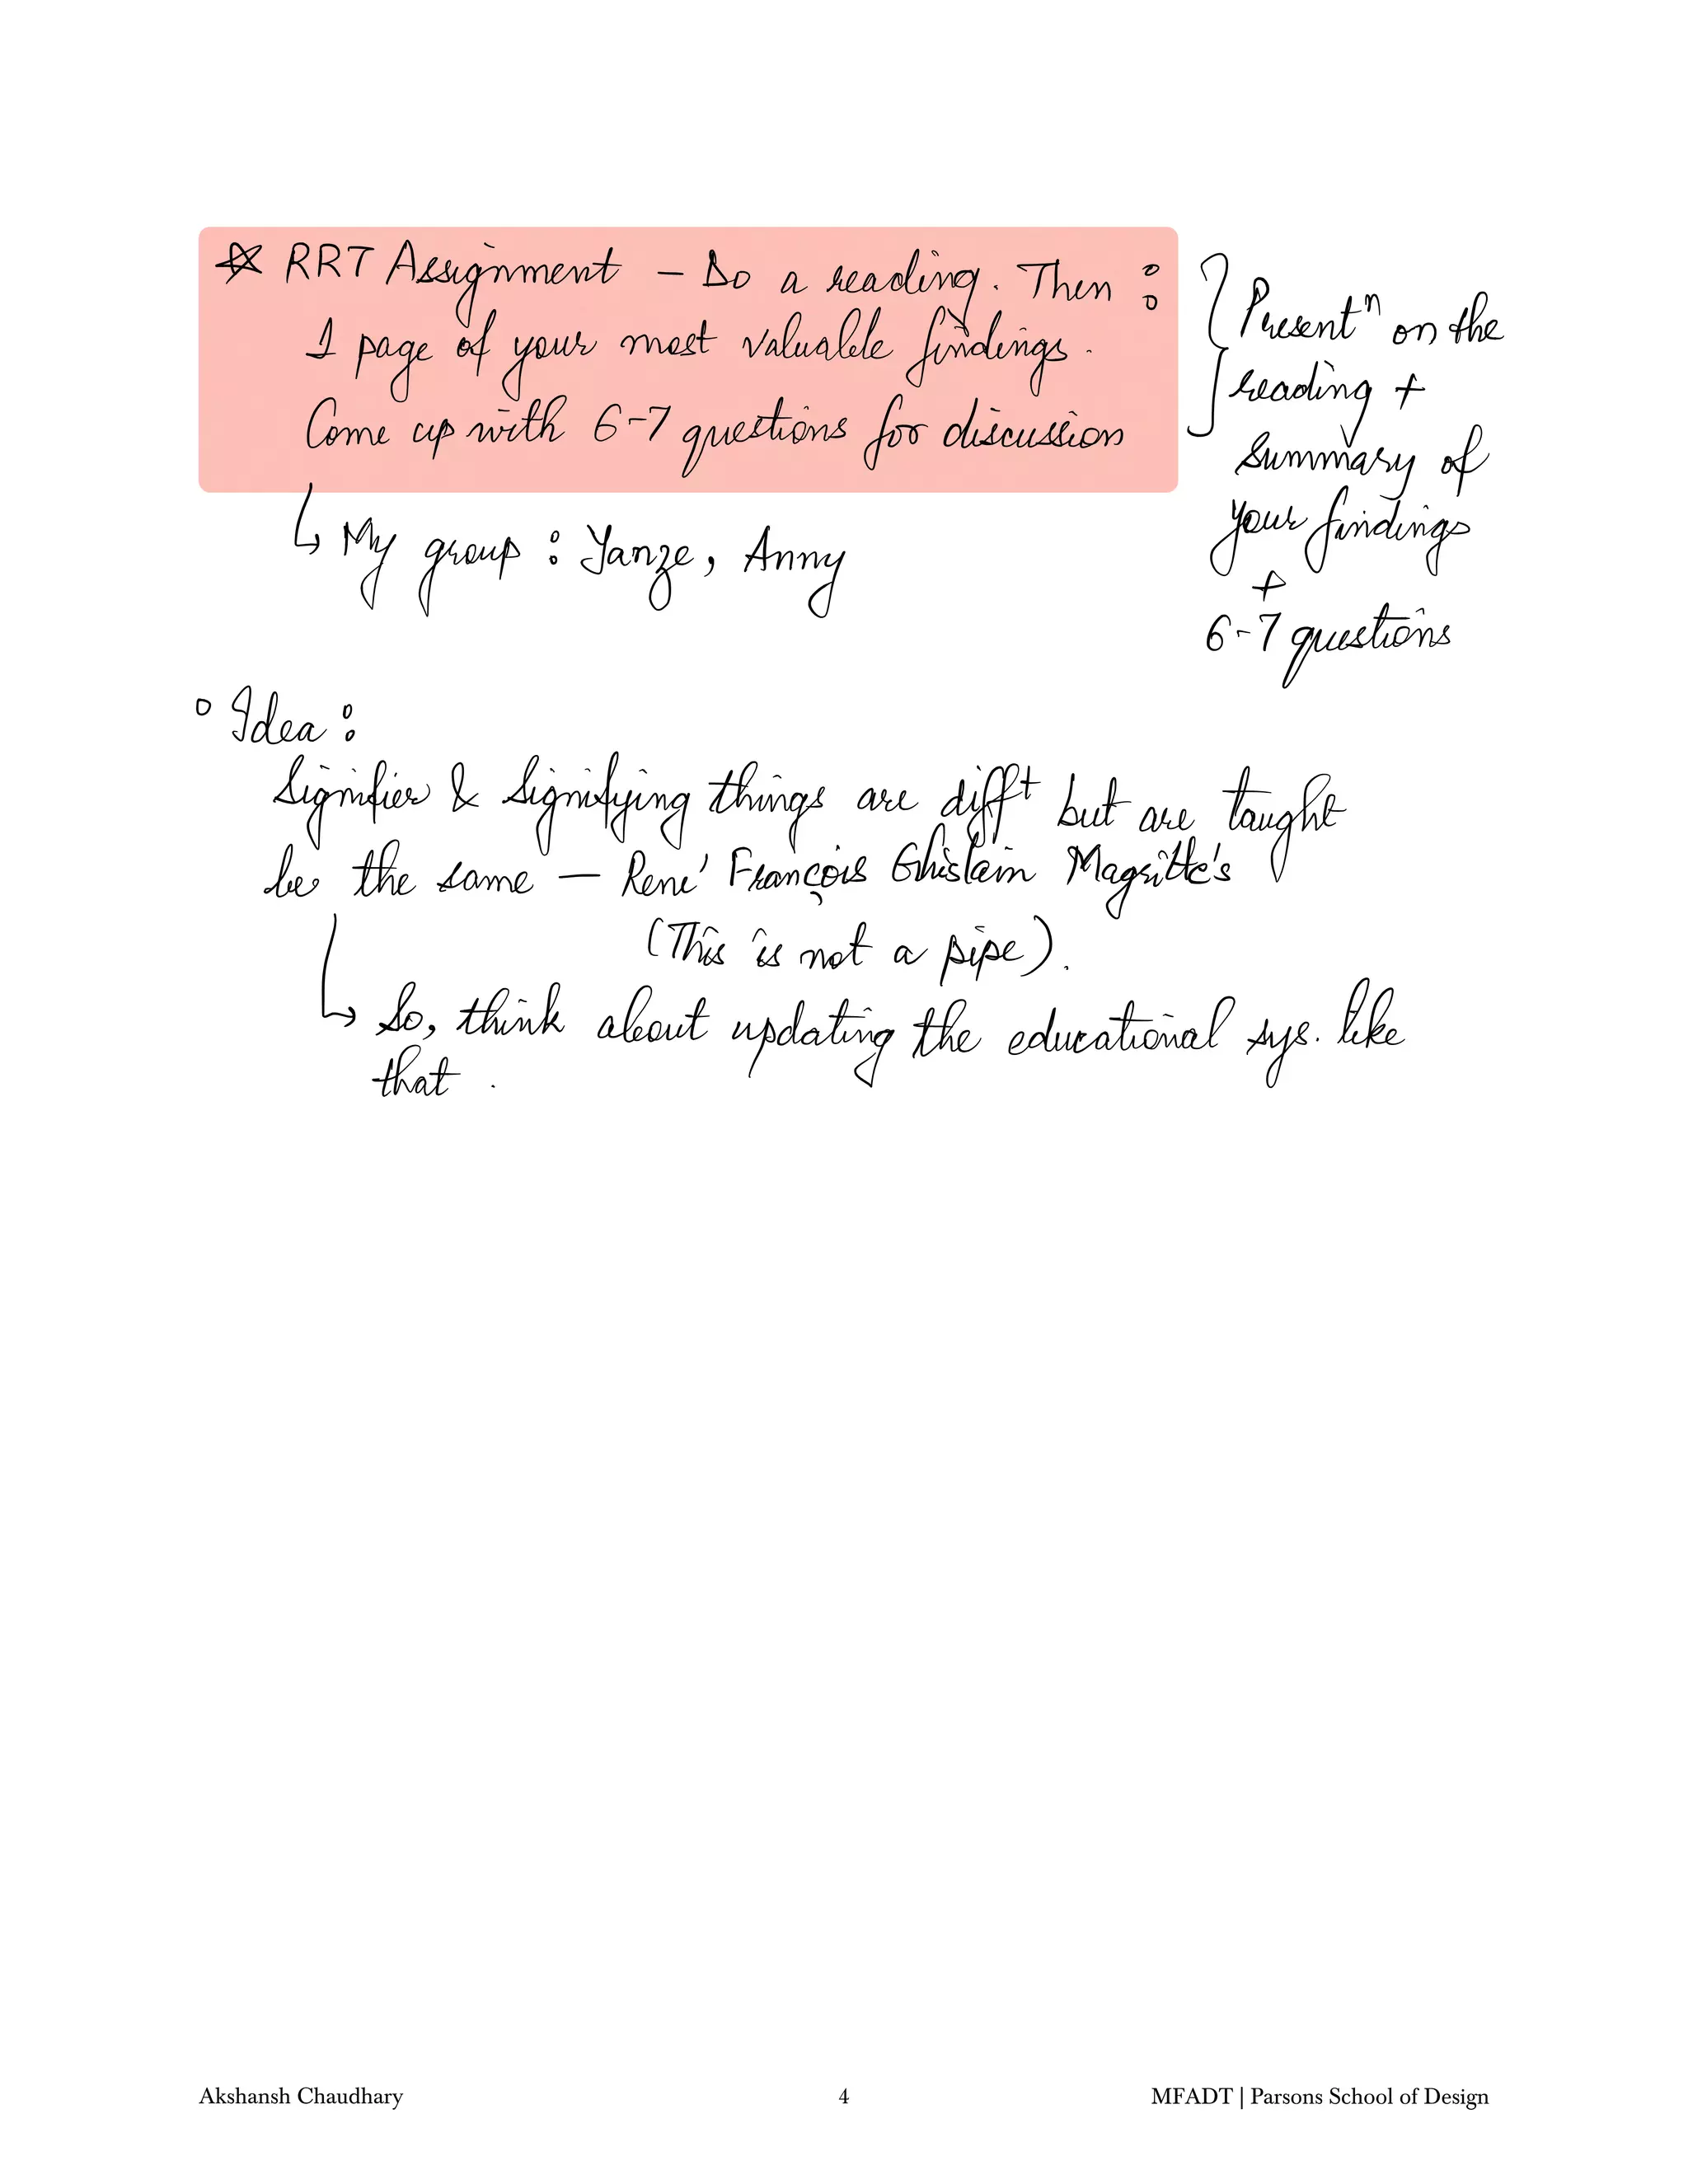 ☆ RRT Assignment - Do a reading. Then :
1 page of your most valuable findings.
Come up with 6-7 questions for discussion
Presentⁿ on the
reading +
Summary of
your findings
+
6-7 questions
↳ My group : Yanze, Anny
° Idea :
Signifier & Signifying things are diffᵗ but are taught
be the same — René François Ghislain Magritte's
(This is not a pipe).
↳ So, think about updating the educational sys. like
that.
Akshansh Chaudhary
4
MFADT | Parsons School of Design